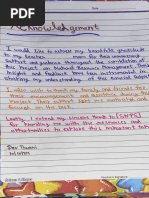 Acknowledgement
I would like to extend my heartfelt gratitude
to my teacher mam for their unwavering
support and guidance throughout the completion of
this Project on Natural Resource Management. Their
insight and feedback have been instrumental in
my understanding of the
I also wish to thank my family and friends for
their encouragement and during this
project. Their support kept me motivated and
focused on the task.
Lastly, I extend my sincere thank to [SNPS]
for providing me with the resources and
opportunities to explore this important topic
Dev Tiwari